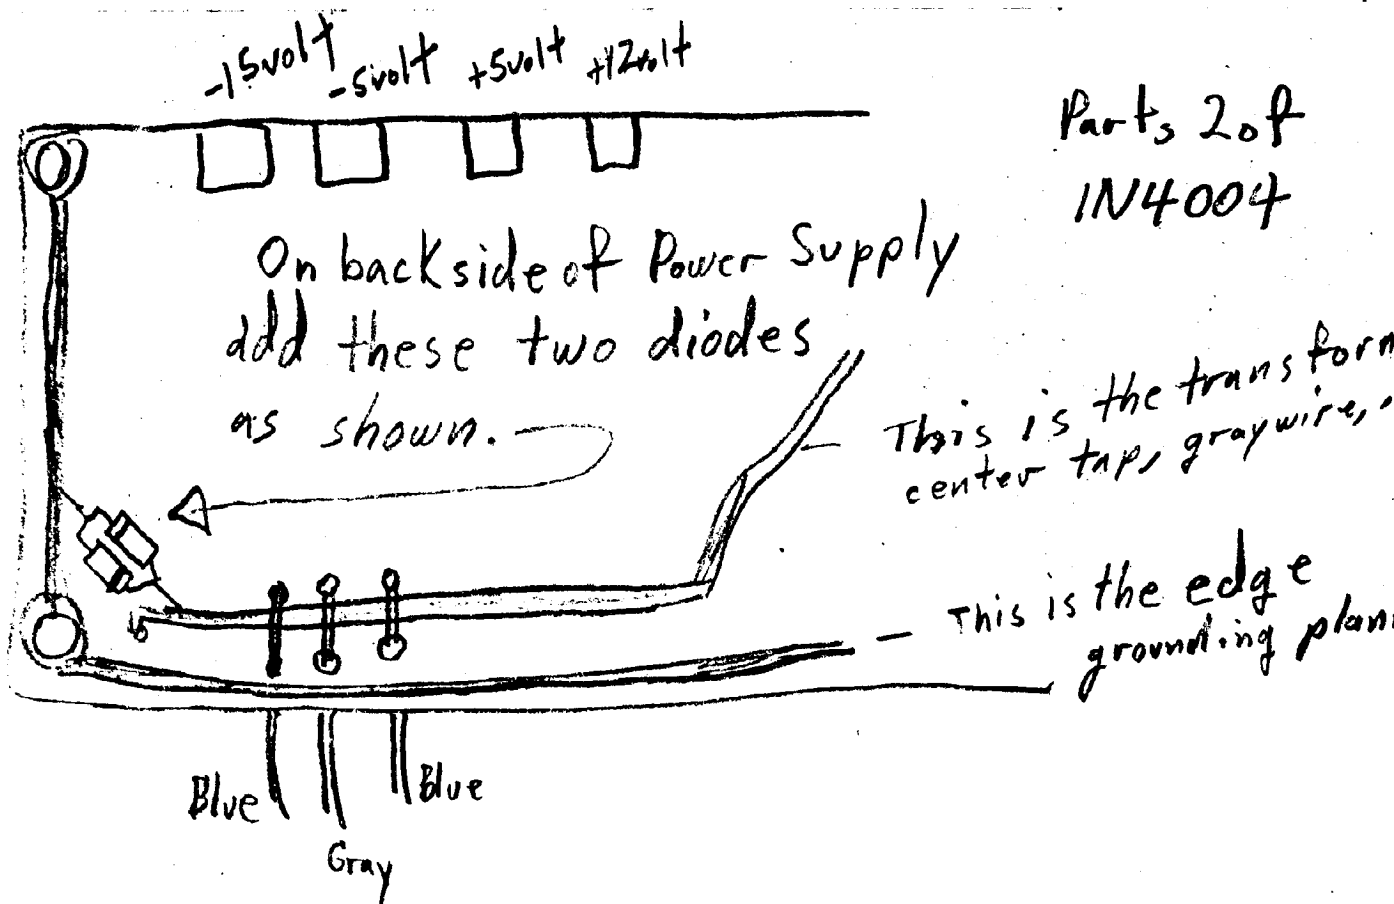 -15volt -5volt +5volt +12volt
Parts 2of
1N4004
On backside of Power Supply
add these two diodes
as shown.
This is the transform
center tap, gray wire,
This is the edge
grounding plan
Blue Blue
Gray